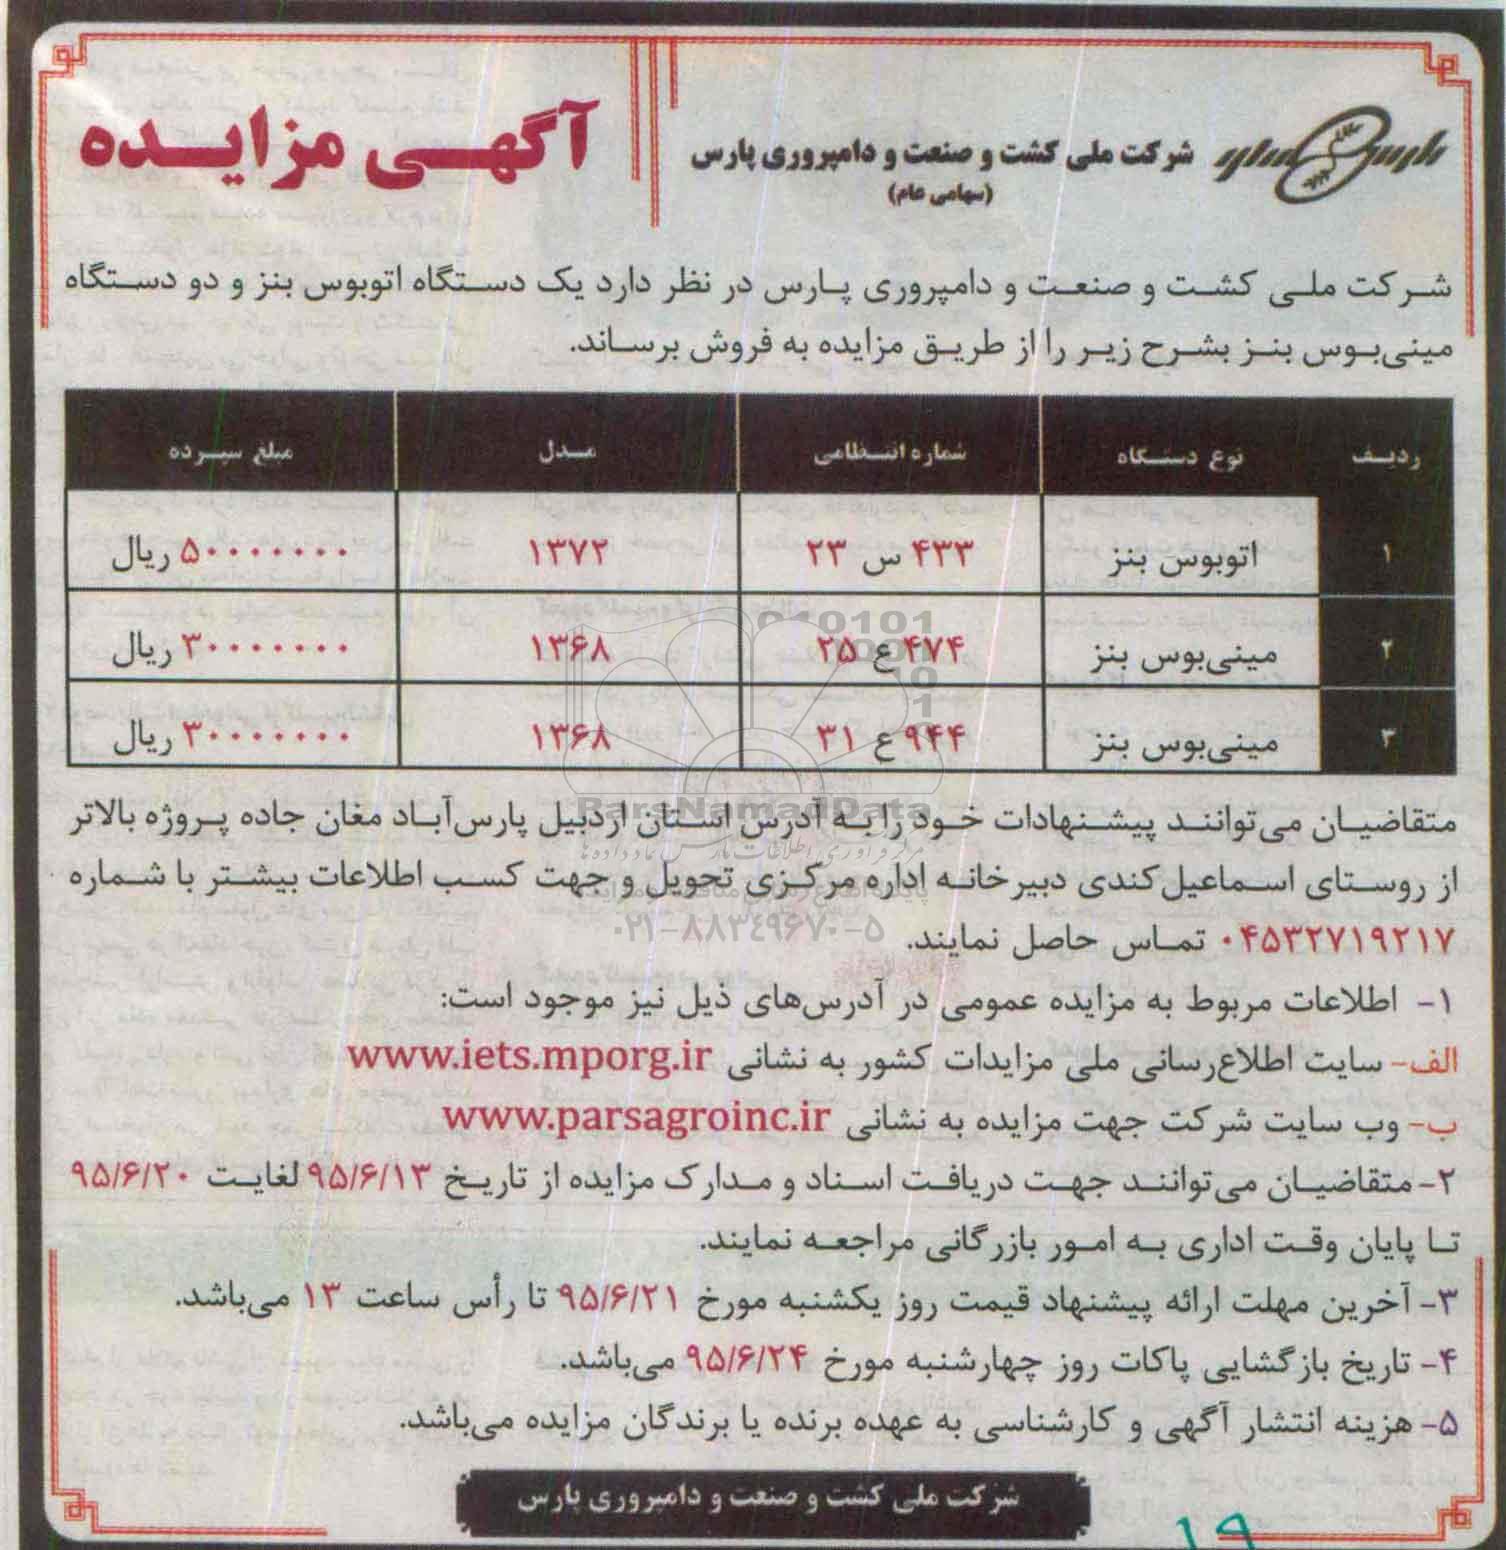 شرکت ملی کشت و صنعت و دامپروری پارس
(سهامی عام)
آگهی مزایده
شرکت ملی کشت و صنعت و دامپروری پارس در نظر دارد یک دستگاه اتوبوس بنز و دو دستگاه
مینی‌بوس بنز بشرح زیر را از طریق مزایده به فروش برساند.
ردیف نوع دستگاه شماره انتظامی مدل مبلغ سپرده
۱ اتوبوس بنز ۴۳۳ س ۲۳ ۱۳۷۲ ۵۰۰۰۰۰۰۰ ریال
۲ مینی‌بوس بنز ۴۷۴ ع ۲۵ ۱۳۶۸ ۳۰۰۰۰۰۰۰ ریال
۳ مینی‌بوس بنز ۹۴۴ ع ۳۱ ۱۳۶۸ ۳۰۰۰۰۰۰۰ ریال
متقاضیان می‌توانند پیشنهادات خود را به آدرس استان اردبیل پارس‌آباد مغان جاده پروژه بالاتر
از روستای اسماعیل‌کندی دبیرخانه اداره مرکزی تحویل و جهت کسب اطلاعات بیشتر با شماره
۰۴۵۳۲۷۱۹۲۱۷ تماس حاصل نمایند.
۱- اطلاعات مربوط به مزایده عمومی در آدرس‌های ذیل نیز موجود است:
الف- سایت اطلاع‌رسانی ملی مزایدات کشور به نشانی www.iets.mporg.ir
ب- وب سایت شرکت جهت مزایده به نشانی www.parsagroinc.ir
۲- متقاضیان می‌توانند جهت دریافت اسناد و مدارک مزایده از تاریخ ۹۵/۶/۱۳ لغایت ۹۵/۶/۲۰
تا پایان وقت اداری به امور بازرگانی مراجعه نمایند.
۳- آخرین مهلت ارائه پیشنهاد قیمت روز یکشنبه مورخ ۹۵/۶/۲۱ تا رأس ساعت ۱۳ می‌باشد.
۴- تاریخ بازگشایی پاکات روز چهارشنبه مورخ ۹۵/۶/۲۴ می‌باشد.
۵- هزینه انتشار آگهی و کارشناسی به عهده برنده یا برندگان مزایده می‌باشد.
شرکت ملی کشت و صنعت و دامپروری پارس
۱۹
ParsNamadData
۰۲۱-۸۸۳۴۹۶۷۰-۵